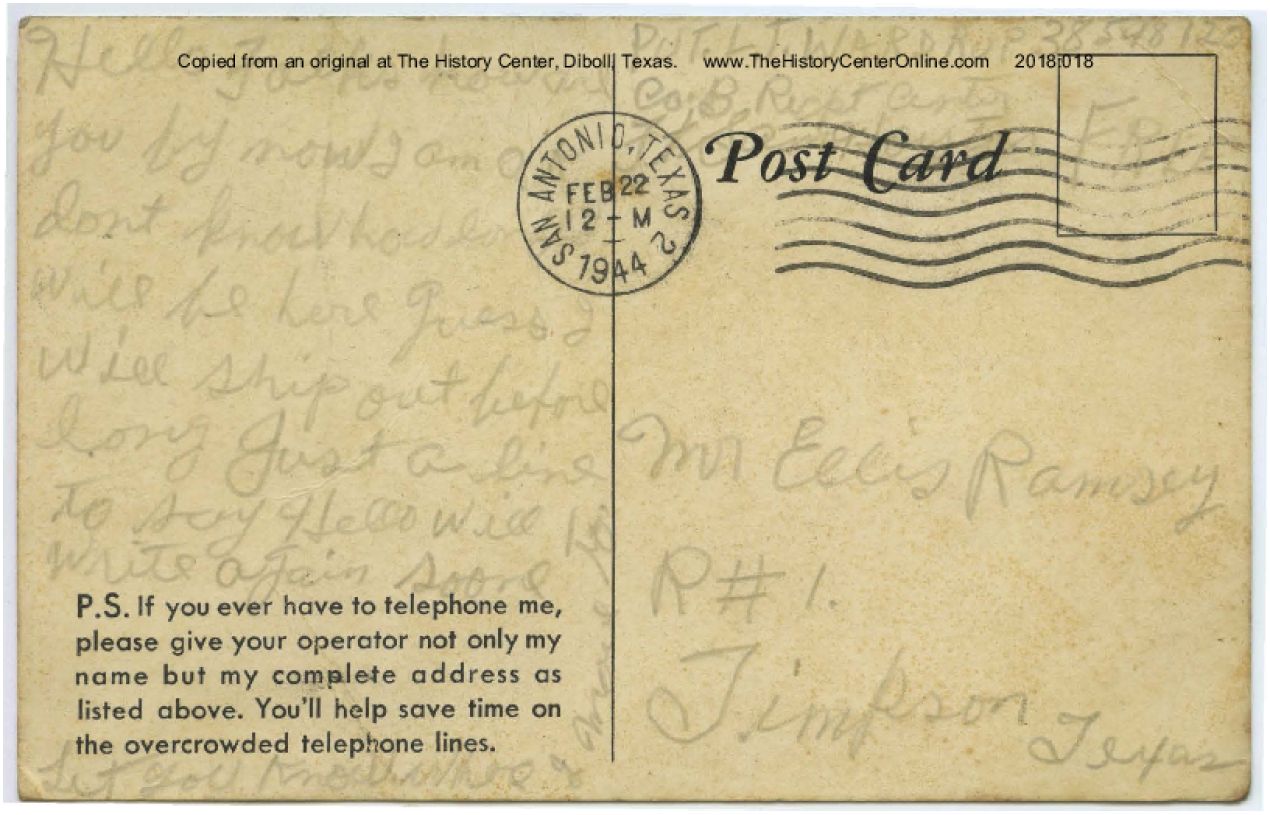 Copied from an original at The History Center, Diboll, Texas. www.TheHistoryCenterOnline.com 2018:018
Hello Folks how are
you by now I am O
dont know how lo
will be here Guess I
will ship out before
long Just a line
to say Hello will
write again soon
P.S. If you ever have to telephone me,
please give your operator not only my
name but my complete address as
listed above. You'll help save time on
the overcrowded telephone lines.
Let you know where I
SAN ANTONIO, TEXAS 2
FEB 22
12 - M
1944
PVT. L.T. WARDROP 38548122
Co. B. Recpt Center
Post Card
FREE
Mr Ellis Ramsey
R#1.
Timpson
Texas